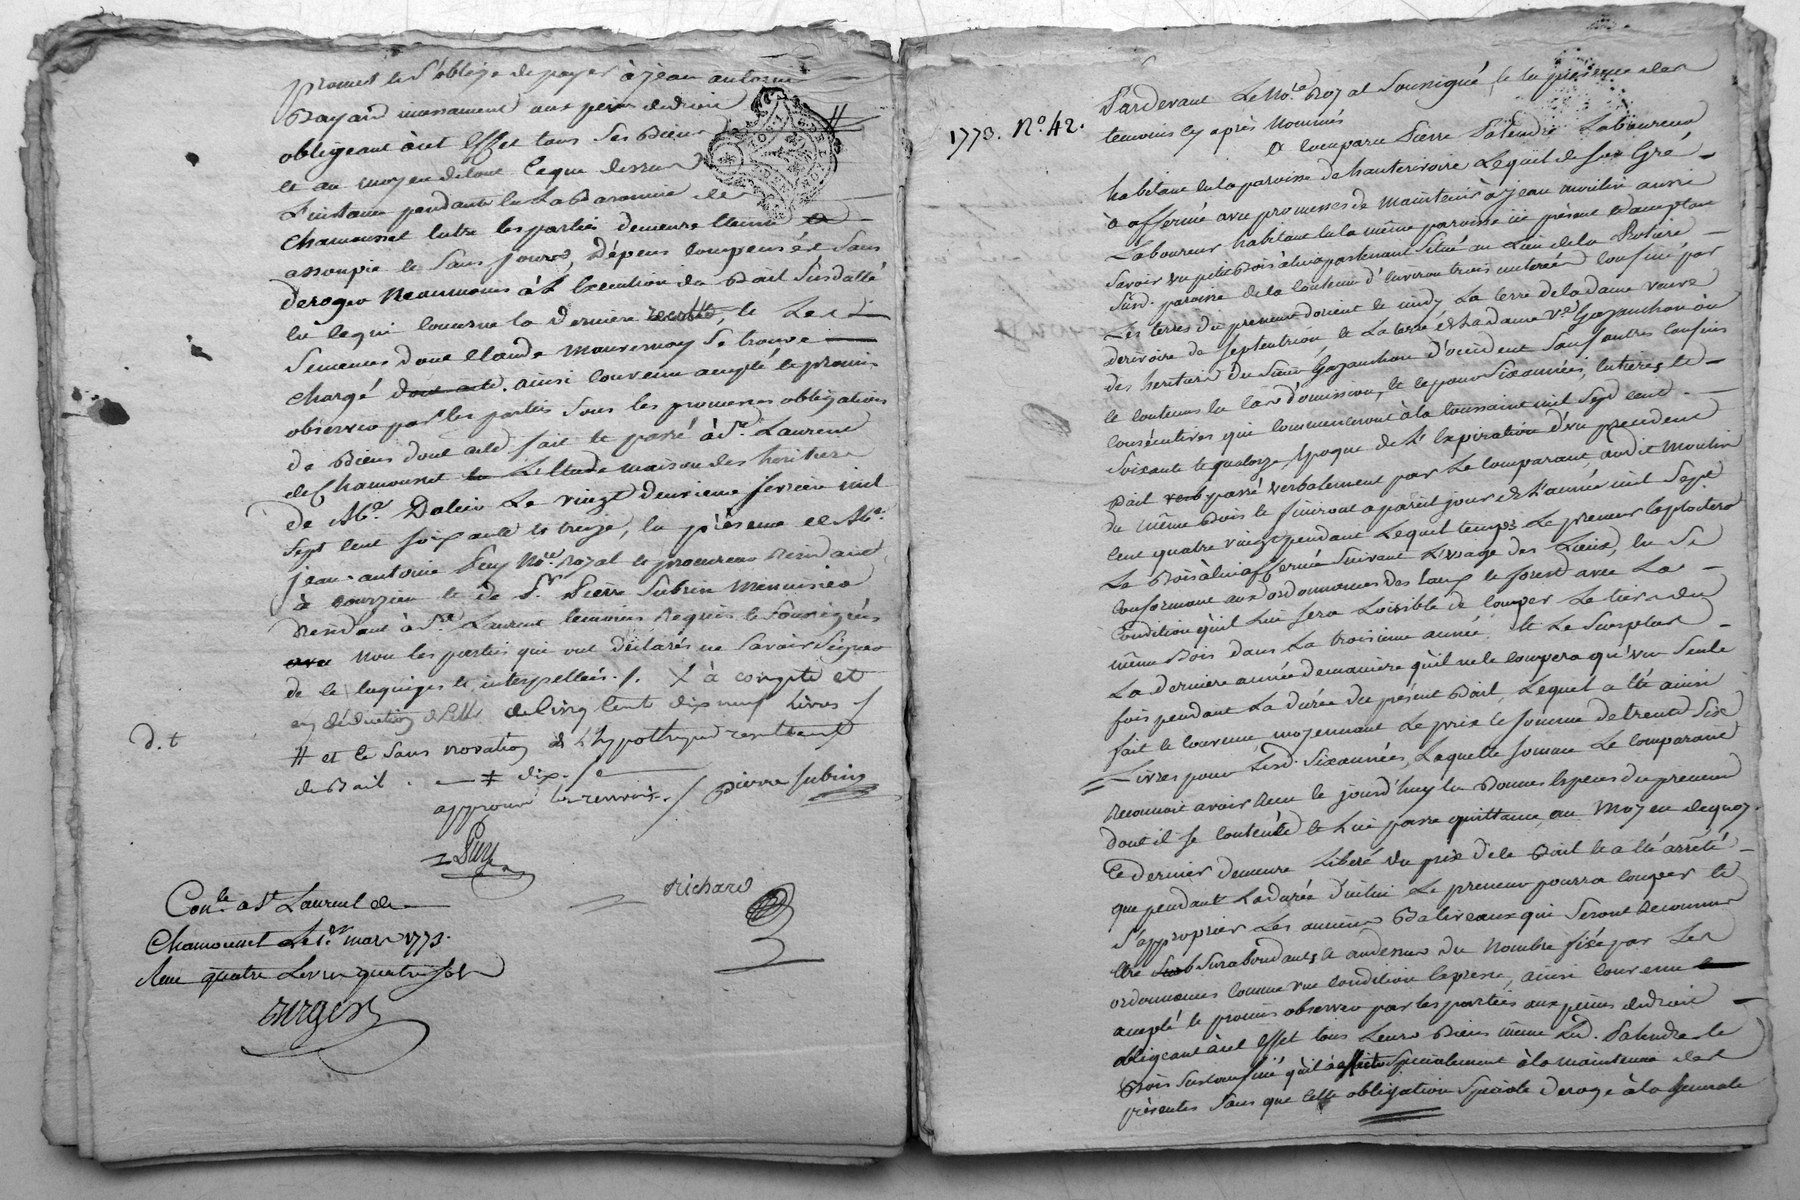 promet & s'oblige de payer à jean antoine
Bayard incessament aux peines de droit
obligeant à cet effet tous ses Biens
& au moyen de tout ce que dessus
L'instance pendante en La Baronnie de
Chamousset entre les parties demeure éteinte
assoupie & sans jours, Dépens compensés & sans
deroger néanmoins à L'execution du Bail susdatté
en ce qui concerne la derniere & Les
semences dont Claude Mauvernay se trouve
chargé dont acte. ainsi convenu accepté & promis
observer par les parties sous les promesses obligations
de Biens dont acte fait & passé à St. Laurent
de Chamousset en L'Etude maison des heritiers
de Me. Dalin Le vingt deuxieme fevrier mil
sept cent soixante & treize, en présence de Me.
jean-antoine Puy Nore. Royal & procureur Residant
à courzieu & de Sr. Pierre Subrin Menuisier
Residant à St. Laurent temoins Requis & soussignés
non les parties qui ont déclarés ne savoir signer
de ce enquises & interpellées ./. X à compte et
en déduction de celle de cinq cent dix neuf Livres /
d. t
# et ce sans novation de l'hypotheque resultant
du Bail. — ‡ dix ./.
approuvé les renvois. / pierre subrin
Puy
Richard
Conlé a St Laurent de
Chamousset Le 1er mars 1773.
Reçu quatre Livres quatre sols
Berger
1773. No. 42.
Pardevant Le Nore. Royal Soussigné, & en présence des
temoins cy après Nommés
A comparu Pierre Palendre Laboureur
habitant en la paroisse de hauterivoire Lequel de son Gré
a affermé avec promesses de maintenir à jean moulin aussi
Laboureur habitant en la même paroisse ici présent & acceptant
savoir un petit Bois à lui appartenant situé au Lieu de la Rotiere
susd. paroisse de la contenue d'environ trois meterées confiné par
Les terres du preneur d'orient & midy La terre de la dame veuve
derivoire de septentrion & La terre de La dame Ve Gazanchon ou
des heritiers du sieur Gazanchon d'occident sauf autres confins
& contenus en cas d'omission, & ce pour six années, entieres &
consécutives qui commenceront à la toussaint mil sept cent
soixante & quatorze, époque de L'expiration d'un precedent
Bail verb passé verbalement par Le comparant, audit Moulin
du même Bois & finiront a pareil jour de L'année mil sept
cent quatre vingt pendant Lequel temps Le preneur exploitera
Le Bois à lui affermé suivant L'usage des Lieux, en se
conformant aux ordonnances des Eaux & forest avec La
Condition qu'il Lui sera Loisible de couper Le tiers du
même Bois dans La troisieme année & Le surplus
La derniere année de maniere qu'il ne le coupera qu'une seule
fois pendant La durée du présent Bail, Lequel a été ainsi
fait & convenu moyennant Le prix & somme de trente six
Livres pour Lesd. six années, Laquelle somme Le comparant
Reconnoit avoir Reçu ce jourd'huy en Bonnes Especes du preneur
dont il se contente & Lui passe quittance, au moyen de quoy
ce dernier demeure Liberé du prix de ce Bail & a été arrêté
que pendant La durée d'icelui Le preneur pourra couper &
s'approprier Les anciens Baliveaux qui seront Reconnus
être surabondants & au dessus du Nombre fixé par Les
ordonnances comme une condition expresse, ainsi convenu
accepté & promis observer par les parties aux peines de droit
obligeant à cet effet tous Leurs Biens même Led. Palendre Le
Bois susconfiné qu'il affecte specialement à la maintenue des
présentes sans que cette obligation speciale deroge à la generale